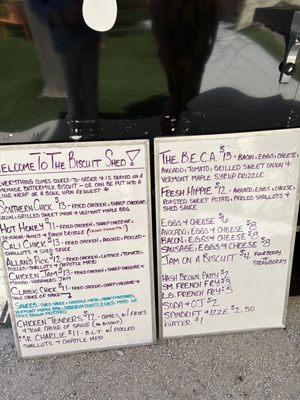 WELCOME TO THE BISCUIT SHED!
EVERYTHING COMES COOKED-TO-ORDER & IS SERVED ON A
HOMEMADE BUTTERMILK BISCUIT - OR CAN BE PUT INTO A
WRAP OR A BOWL UPON REQUEST
SOUTHERN CHICK $13 - FRIED CHICKEN, SHARP CHEDDAR,
BACON, GRILLED SWEET ONION & VERMONT MAPLE BBQ
HOT HONEY $11 - FRIED CHICKEN, SHARP CHEDDAR,
HONEY & HONEY DRIZZLE
CALI CHICK $13 - FRIED CHICKEN, AVOCADO, PICKLED-
SHALLOTS & SHED SAUCE
ALLAN'S PICK $12 - FRIED CHICKEN, LETTUCE, TOMATO,
PICKLED-SHALLOTS & CHIPOTLE MAYO
CHICKEN JAM $13 - FRIED CHICKEN, SHARP CHEDDAR &
HABANERO JAM
CLASSIC CHICK $11 - FRIED CHICKEN, SHARP CHEDDAR &
SAUCES: SHED SAUCE, CHIPOTLE MAYO, HONEY MUSTARD,
VERMONT MAPLE BBQ,
SPICY BROWN MUSTARD
CHICKEN TENDERS $12 - COMES W/ FRIES
& YOUR CHOICE OF SAUCE (NO BISCUIT)
MR. CHARLIE $11 - B.L.T. W/ PICKLED
SHALLOTS & CHIPOTLE MAYO
THE B.E.C.A. $13 - BACON, EGGS, CHEESE,
AVOCADO, TOMATO, GRILLED SWEET ONION &
VERMONT MAPLE SYRUP DRIZZLE
FRESH HIPPIE $12 - AVOCADO, EGGS, CHEESE,
ROASTED SWEET POTATO, PICKLED SHALLOTS &
SHED SAUCE
EGGS & CHEESE $6
EGGS & CHEESE $8
BACON, EGGS & CHEESE $9
SAUSAGE, EGGS & CHEESE $9
JAM ON A BISCUIT $4 BLUEBERRY OR
STRAWBERRY
HASH BROWN PATTY $2
SM. FRENCH FRY $3
LG. FRENCH FRY $5
SODA & OJ $2
SPINDRIFT & IZZE $2.50
WATER $1